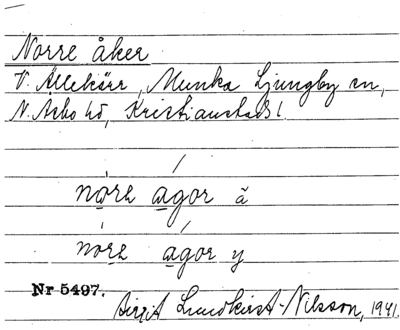 Norre åker
V. Ällekärr, Munka Ljungby sn,
N. Åsbo hd, Kristianstads l.
nọrɛ agor ä
nọrɛ agor y
Nr 5497.
Birgit Lundkvist-Nilsson, 1941.